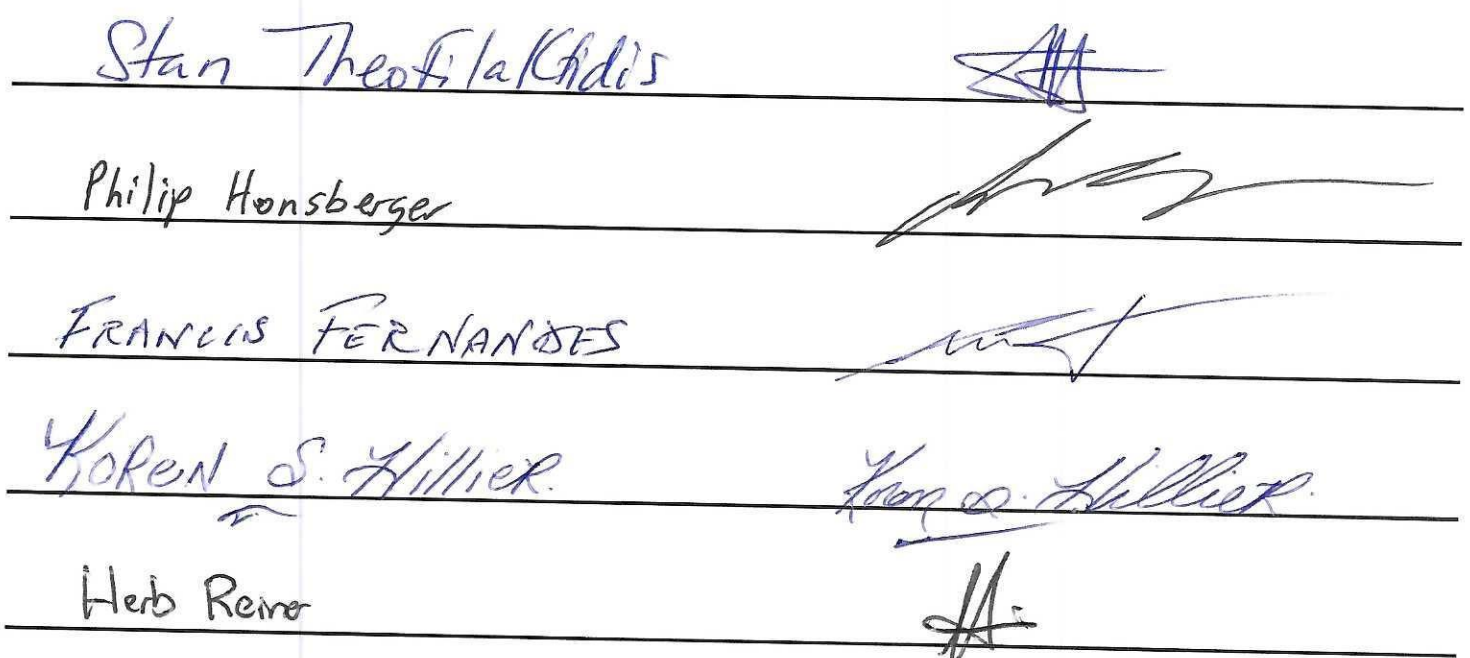 Stan Theofilaktidis
Philip Honsberger
FRANCIS FERNANDES
KOREN S. HillieR. Koren S. HillieR.
Herb Reiner